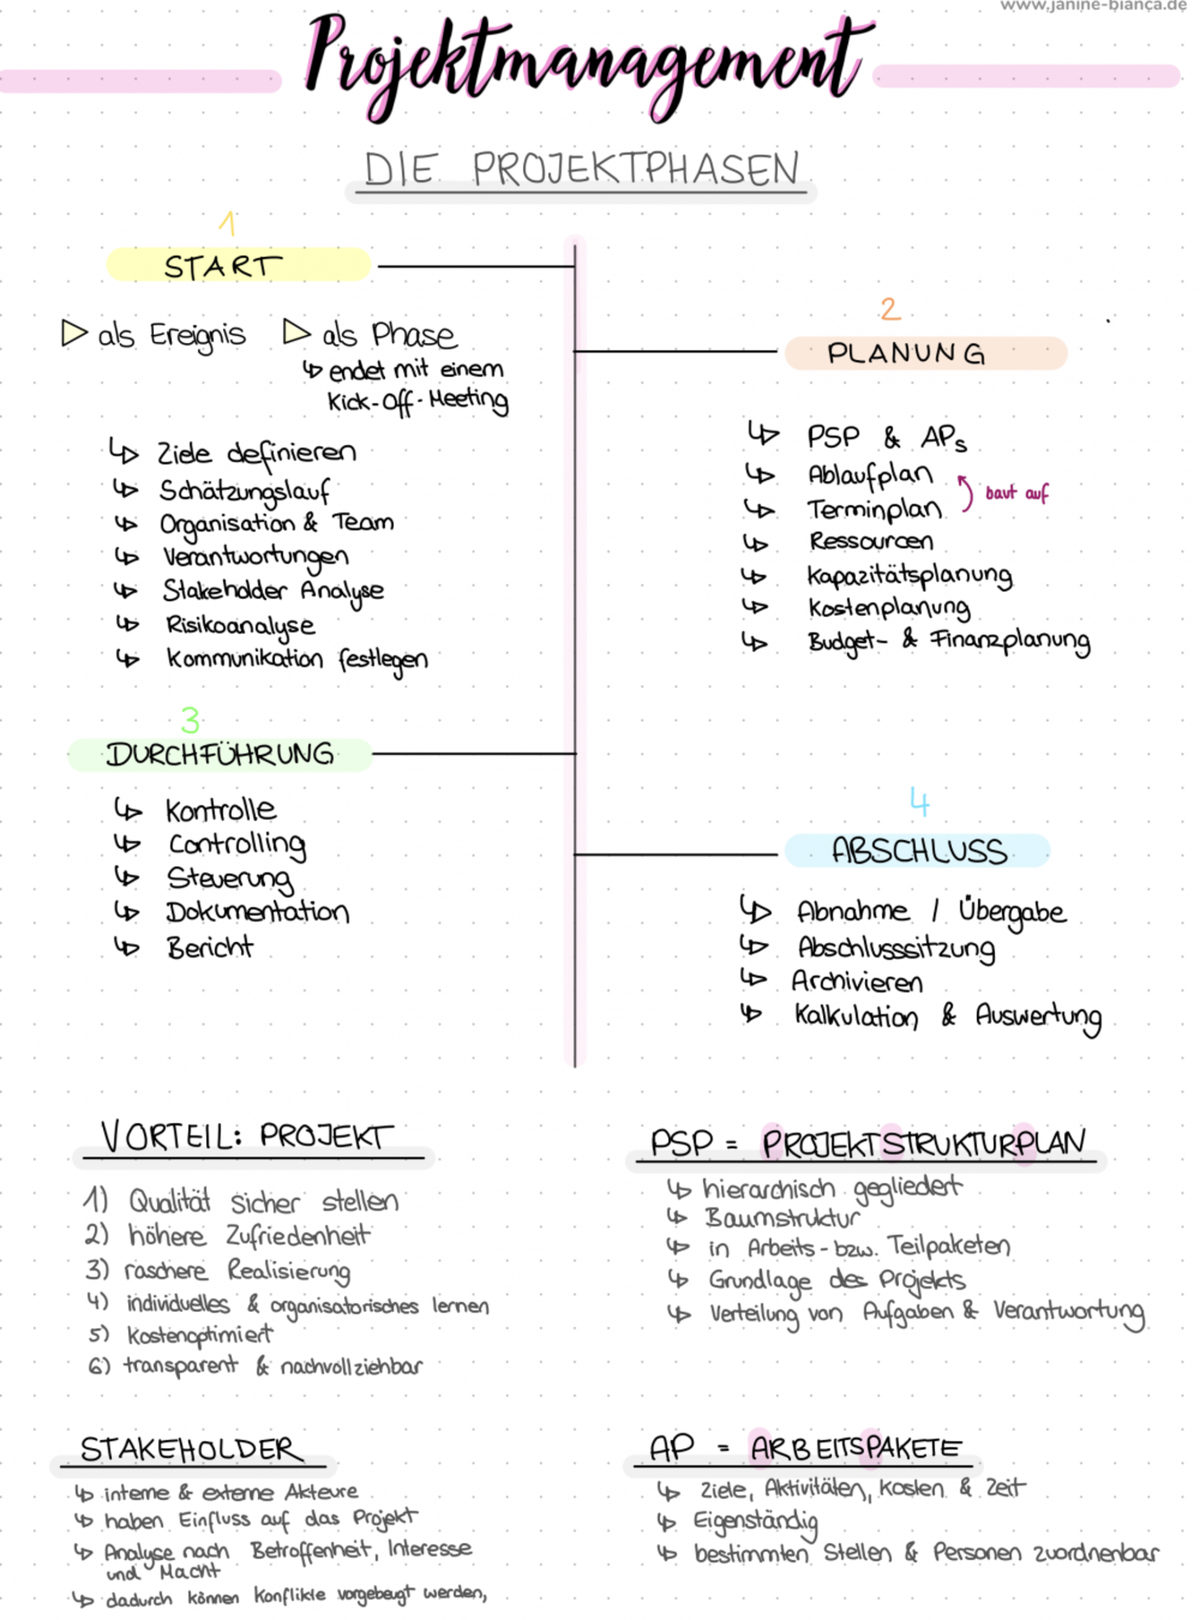 www.janine-bianca.de
Projektmanagement
DIE PROJEKTPHASEN
1
START
als Ereignis
als Phase
endet mit einem
Kick-Off-Meeting
Ziele definieren
Schätzungslauf
Organisation & Team
Verantwortungen
Stakeholder Analyse
Risikoanalyse
Kommunikation festlegen
2
PLANUNG
PSP & APs
Ablaufplan
baut auf
Terminplan
Ressourcen
Kapazitätsplanung
Kostenplanung
Budget- & Finanzplanung
3
DURCHFÜHRUNG
Kontrolle
Controlling
Steuerung
Dokumentation
Bericht
4
ABSCHLUSS
Abnahme / Übergabe
Abschlusssitzung
Archivieren
Kalkulation & Auswertung
VORTEIL: PROJEKT
1) Qualität sicher stellen
2) höhere Zufriedenheit
3) raschere Realisierung
4) individuelles & organisatorisches lernen
5) Kostenoptimiert
6) transparent & nachvollziehbar
PSP = PROJEKTSTRUKTURPLAN
hierarchisch gegliedert
Baumstruktur
in Arbeits- bzw. Teilpaketen
Grundlage des Projekts
Verteilung von Aufgaben & Verantwortung
STAKEHOLDER
interne & externe Akteure
haben Einfluss auf das Projekt
Analyse nach Betroffenheit, Interesse
und Macht
dadurch können Konflikte vorgebeugt werden,
AP = ARBEITSPAKETE
Ziele, Aktivitäten, Kosten & Zeit
Eigenständig
bestimmten Stellen & Personen zuordnenbar